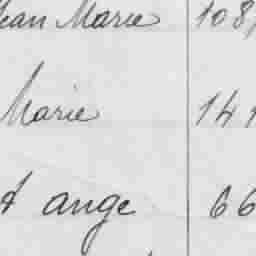 Jean Marie 108
Marie 141
t ange 66